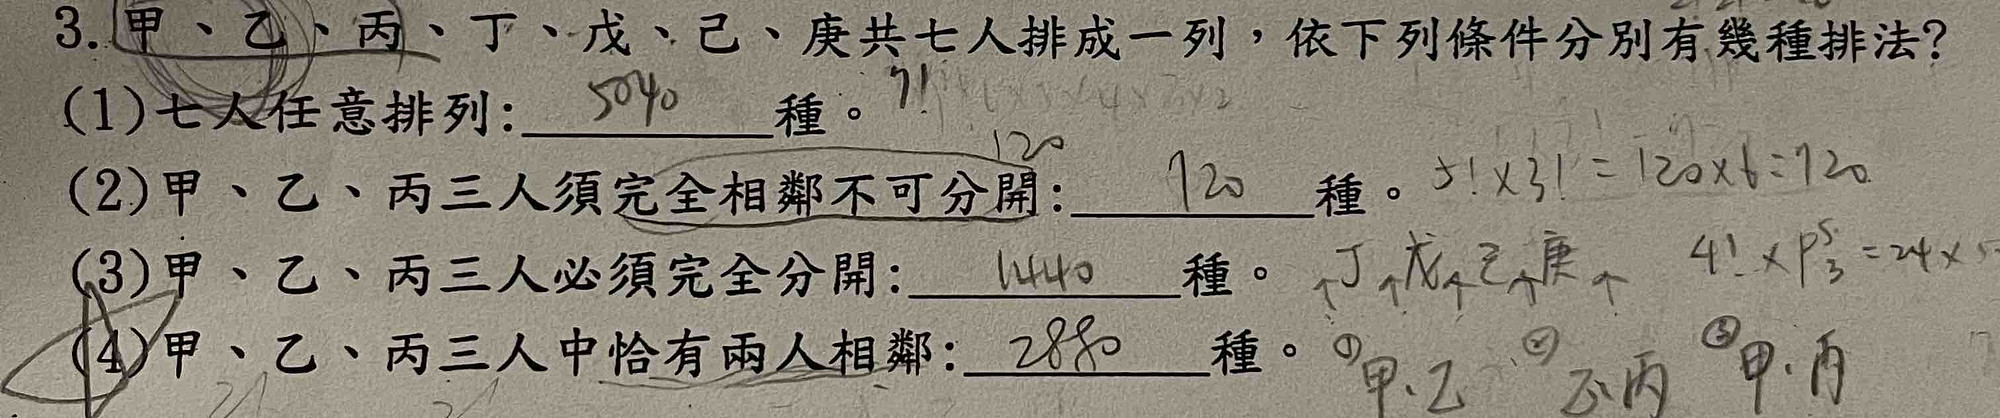 3. 甲、乙、丙、丁、戊、己、庚共七人排成一列，依下列條件分別有幾種排法?
(1)七人任意排列: 5040 種。 7!
120
(2)甲、乙、丙三人須完全相鄰不可分開: 720 種。 5!×3! = 120×6=720
(3)甲、乙、丙三人必須完全分開: 1440 種。 ↑丁↑戊↑己↑庚↑ 4!×P⁵₃=24×5
(4)甲、乙、丙三人中恰有兩人相鄰: 2880 種。 ①甲.乙 ②乙.丙 ③甲.丙